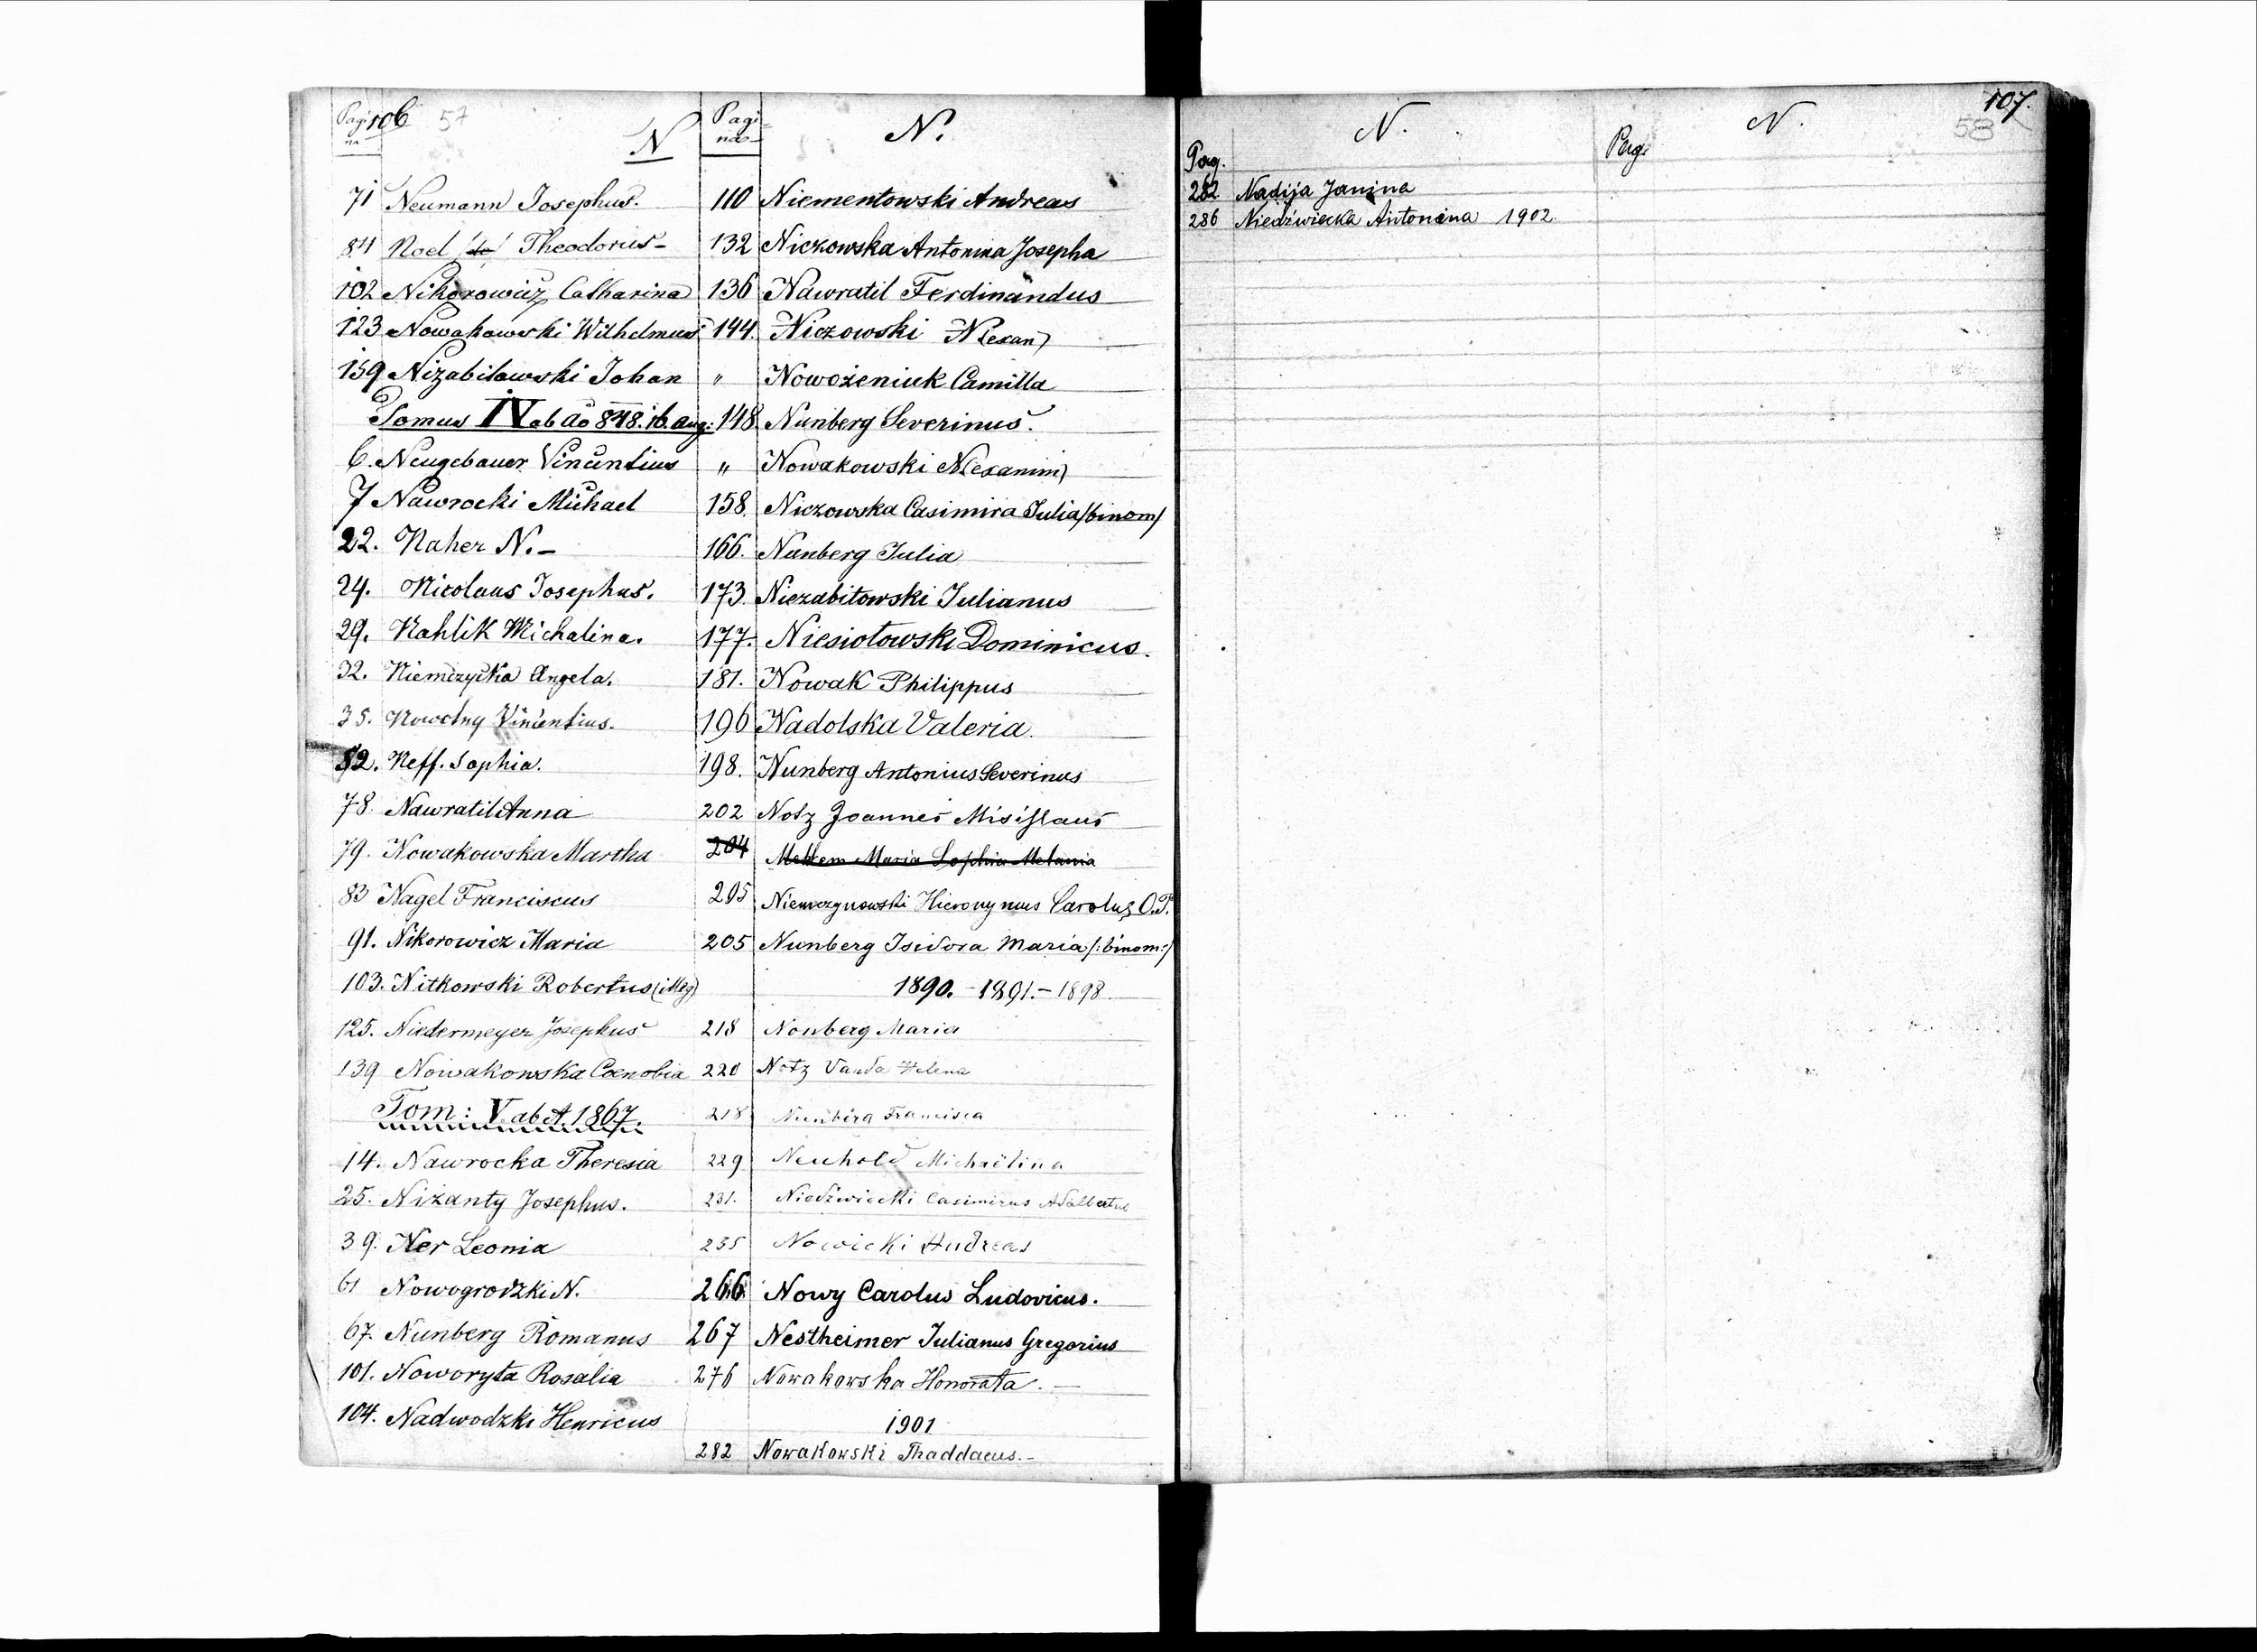 Pagina
106
57
N
71 Neumann Josephus.
84 Noel /de/ Theodorus –
102 Nikorowicz Catharina
123 Nowakowski Wilhelmus
159 Nizabitowski Johan
Tomus IV ab Ao 848. 16. Aug:
6. Neugebauer Vincentius
7 Nawrocki Michael
22. Naher N. –
24. Nicolaus Josephus.
29. Nahlik Michalina.
32. Niemczycka Angela.
35. Nowotny Vincentius.
52. Neff. Sophia.
78. Nawratil Anna
79. Nowakowska Martha
83 Nagel Franciscus
91. Nikorowicz Maria
103. Nitkowski Robertus (illeg)
125. Niedermeyer Josephus
139 Nowakowska Coenobia
Tom: V. ab A. 1867.
14. Nawrocka Theresia
25. Niżanty Josephus.
39. Ner Leonia
61 Nowogrodzki N.
67. Nunberg Romanus
101. Noworyta Rosalia
104. Nadwodzki Henricus
Paginae
N.
110 Niementowski Andreas
132 Niczowska Antonina Josepha
136 Nawratil Ferdinandus
144. Niczowski
" Nowożeniuk Camilla
148 Nunberg Severinus
" Nowakowski
158. Niczowska Casimira Julia /binom/
166. Nunberg Julia
173. Niezabitowski Julianus
177. Niesiołowski Dominicus.
181. Nowak Philippus
196 Nadolska Valeria
198. Nunberg Antonius Severinus
202 Notz Joannes
204 Maria Sophia Melania
205 Hieronymus Carolus O.P.
205 Nunberg Isidora Maria /:binom:/
1890. – 1891. – 1898
218 Nonberg Maria
220 Notz Vanda Helena
218 Nunberg Francisca
229 Neuhold Michaëlina
231. Niedźwiecki Casimirus Adalbertus
235 Nowicki Andreas
266 Nowy Carolus Ludovicus.
267 Nestheimer Julianus Gregorius
276 Nowakowska Honorata. –
1901
282 Nowakowski Thaddaeus. –
N.
Pag.
282 Nadija Janina
286 Niedźwiecka Antonina 1902.
N.
107.
58
Pag.